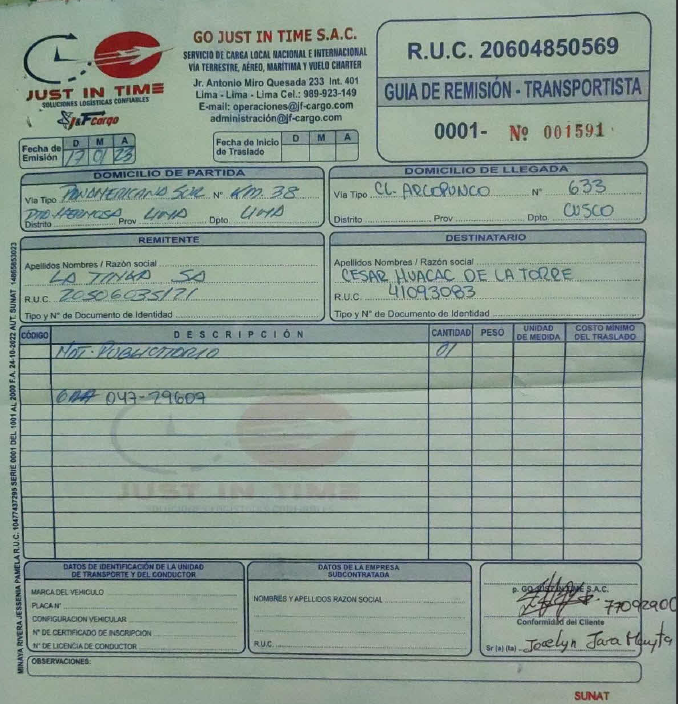 JUST IN TIME
SOLUCIONES LOGÍSTICAS CONFIABLES
J&F cargo
GO JUST IN TIME S.A.C.
SERVICIO DE CARGA LOCAL NACIONAL E INTERNACIONAL
VÍA TERRESTRE, AÉREO, MARÍTIMA Y VUELO CHARTER
Jr. Antonio Miro Quesada 233 Int. 401
Lima - Lima - Lima Cel.: 989-923-149
E-mail: operaciones@jf-cargo.com
administración@jf-cargo.com
R.U.C. 20604850569
GUIA DE REMISIÓN - TRANSPORTISTA
0001- Nº 001591
Fecha de Emisión D M A
17 01 23
Fecha de Inicio de Traslado D M A
DOMICILIO DE PARTIDA
Vía Tipo PANAMERICANA SUR Nº KM. 38
Distrito PTO HERMOSA Prov LIMA Dpto LIMA
DOMICILIO DE LLEGADA
Vía Tipo CL. ARCOPUNCO Nº 633
Distrito Prov Dpto CUSCO
REMITENTE
Apellidos Nombres / Razón social
LA TINKA SA
R.U.C. 20506035121
Tipo y N° de Documento de Identidad
DESTINATARIO
Apellidos Nombres / Razón social
CESAR HUACAC DE LA TORRE
R.U.C. 41093083
Tipo y N° de Documento de Identidad
CÓDIGO DESCRIPCIÓN CANTIDAD PESO UNIDAD DE MEDIDA COSTO MÍNIMO DEL TRASLADO
MAT. PUBLICITARIO 01
047-29609
JUST IN TIME
DATOS DE IDENTIFICACIÓN DE LA UNIDAD DE TRANSPORTE Y DEL CONDUCTOR
MARCA DEL VEHICULO
PLACA N°
CONFIGURACION VEHICULAR
N° DE CERTIFICADO DE INSCRIPCION
N° DE LICENCIA DE CONDUCTOR
DATOS DE LA EMPRESA SUBCONTRATADA
NOMBRES Y APELLIDOS RAZON SOCIAL
R.U.C.
p. GO JUST IN TIME S.A.C.
77092900
Conformidad del Cliente
Sr (a) (ta) Jocelyn Jara
OBSERVACIONES:
SUNAT
MINAYA RIVERA JESSENIA PAMELA R.U.C. 10477437295 SERIE 0001 DEL 1001 AL 2000 F.A. 24-10-2022 AUT. SUNAT